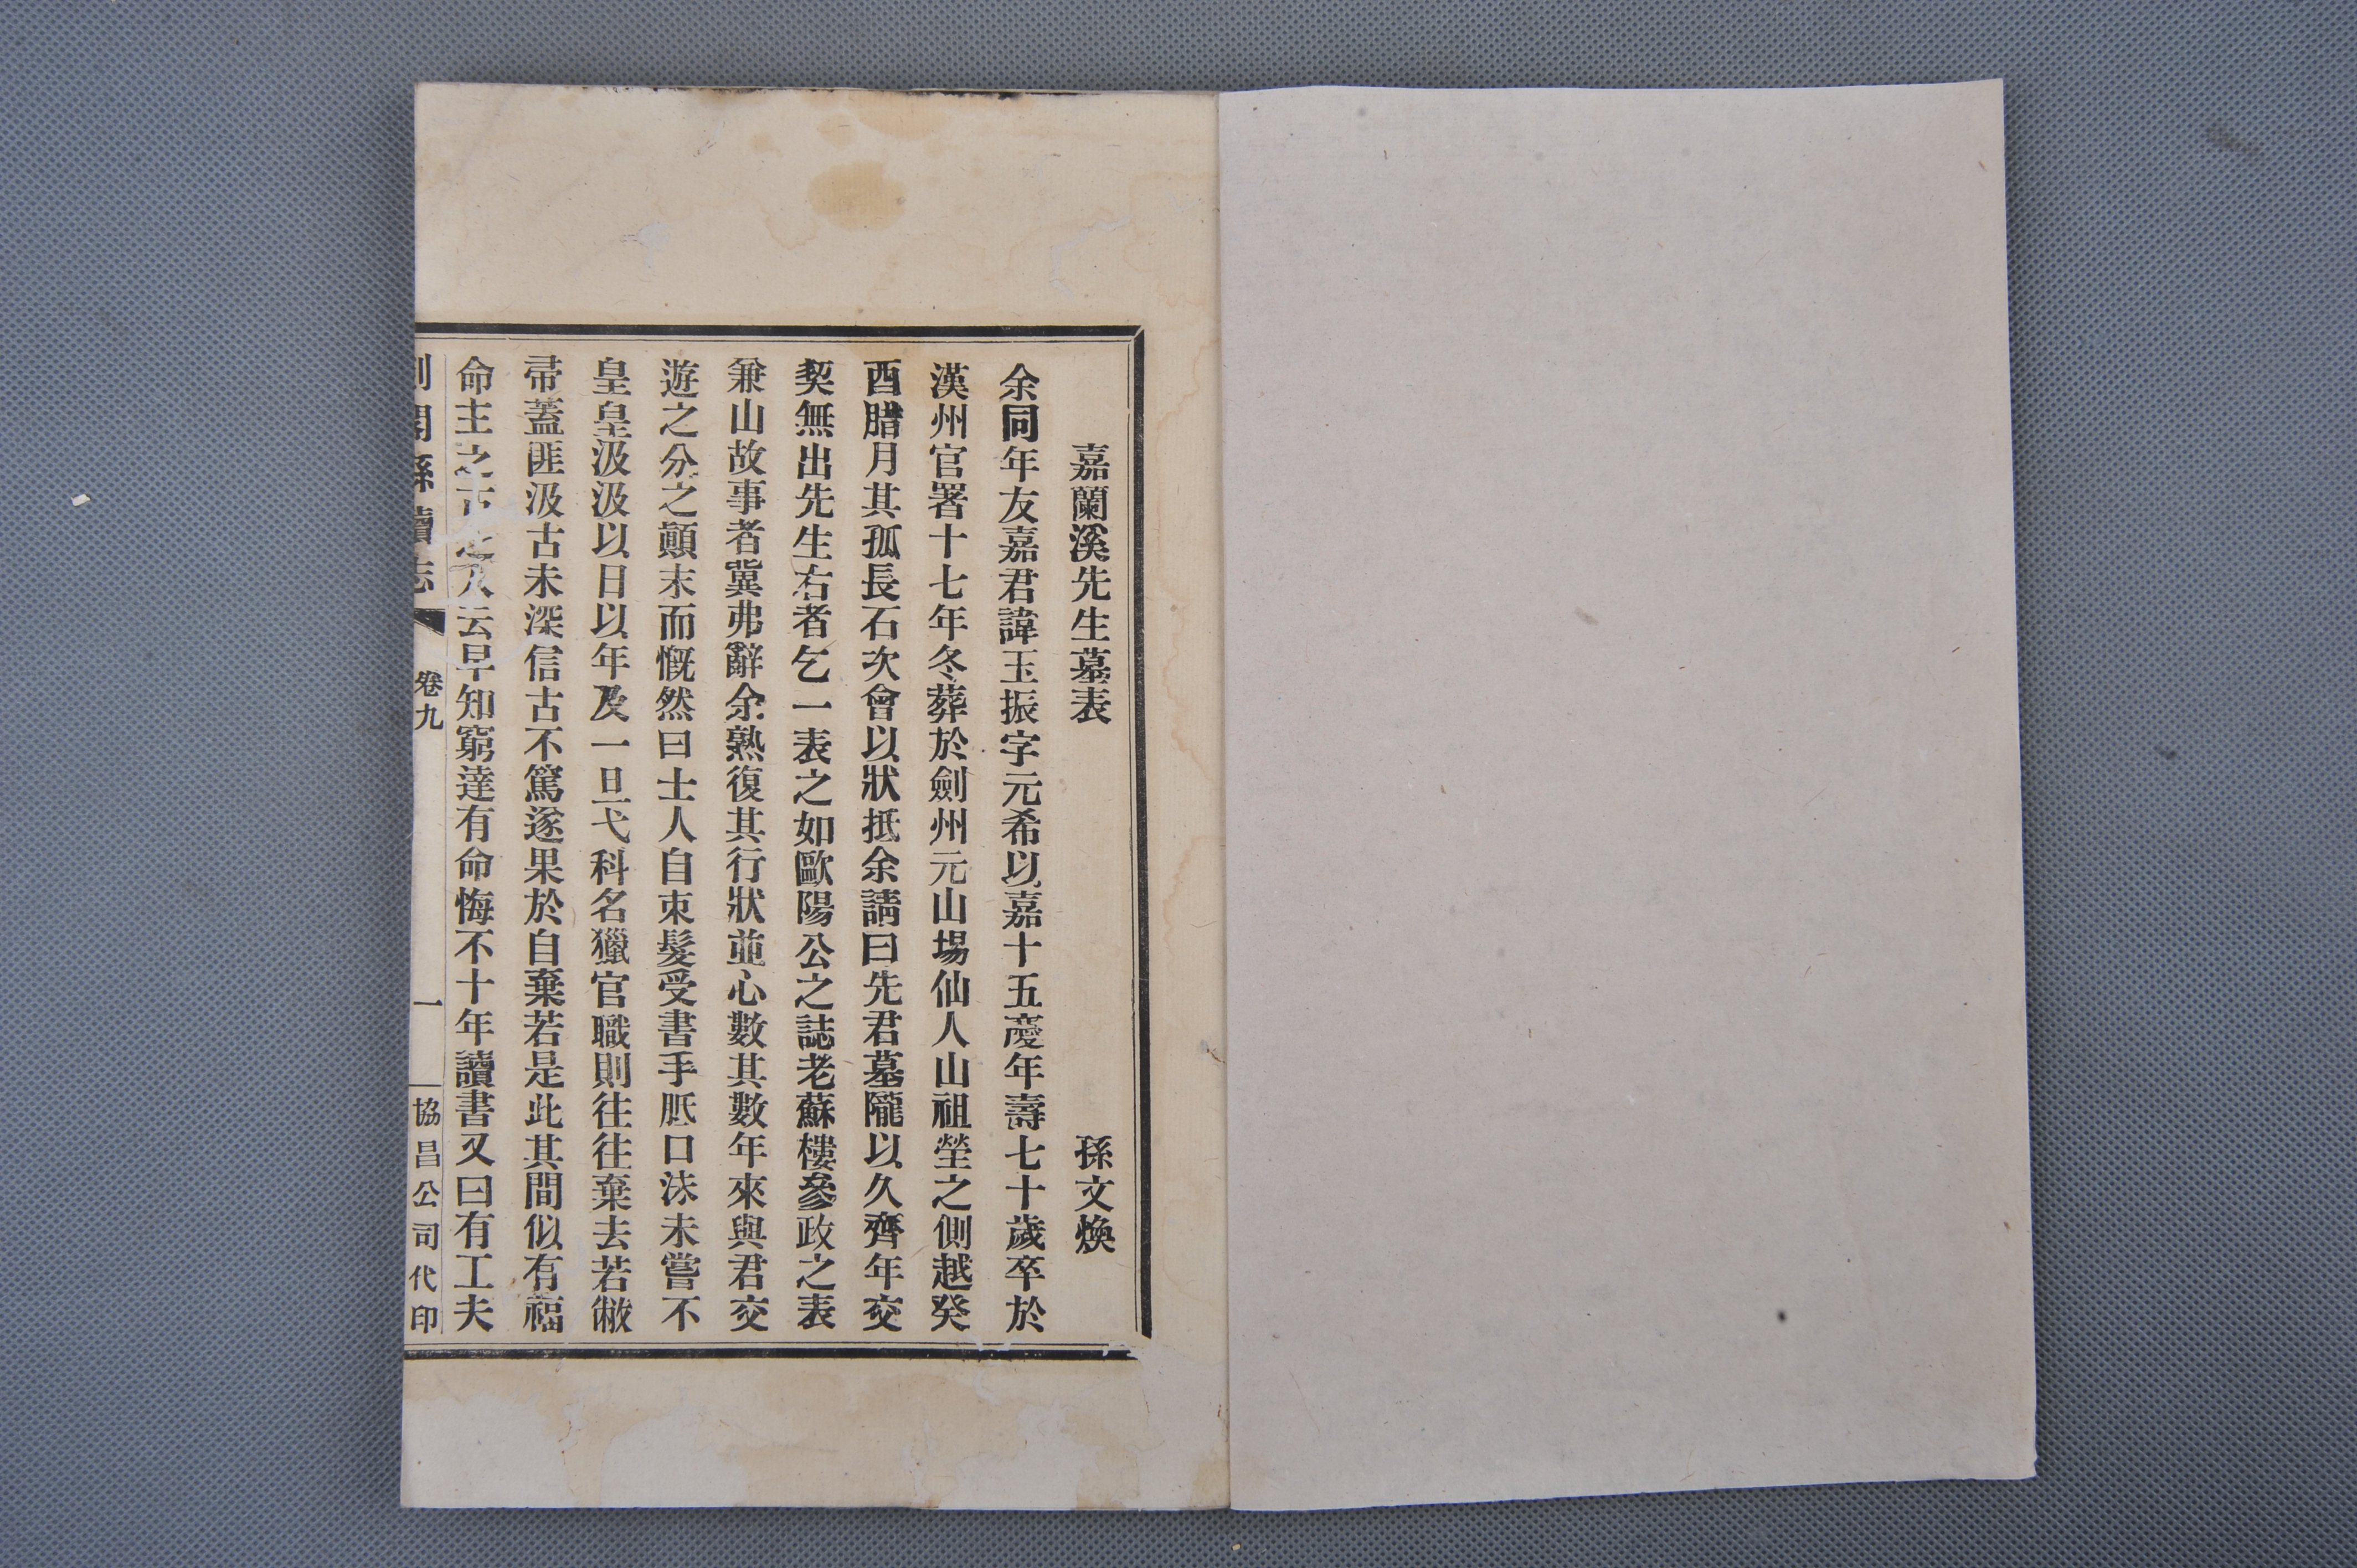 嘉蘭溪先生墓表 孫文煥
余同年友嘉君諱玉振字元希以嘉十五慶年壽七十歲卒於
漢州官署十七年冬葬於劍州元山場仙人山祖塋之側越癸
酉腊月其孤長石次會以狀抵余請曰先君墓隴以久齊年交
契無出先生右者乞一表之如歐陽公之誌老蘇樓參政之表
兼山故事者冀弗辭余熟復其行狀並心數其數年來與君交
遊之分之顛末而慨然曰士人自束髮受書手胝口沫未嘗不
皇皇汲汲以日以年及一旦弋科名獵官職則往往棄去若敝
帚蓋匪汲古未深信古不篤遂果於自棄若是此其間似有福
命主之古之人云早知窮達有命悔不十年讀書又曰有工夫
劍閣縣續志 卷九 一 協昌公司代印